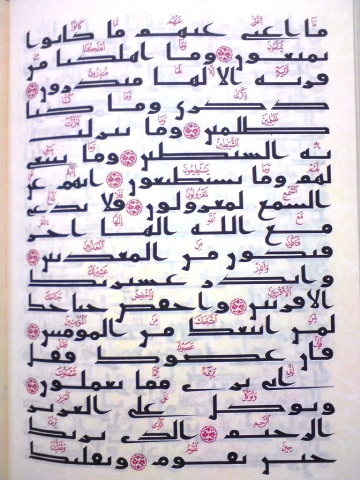 ما اغنى عنهم ما كانوا
يمتعون وما اهلكنا من
قرية الا لها منذرون
ذكرى وما كنا
ظلمين وما تنزلت
به الشيطين وما ينبغي
لهم وما يستطيعون انهم عن
السمع لمعزولون فلا تدع
مع الله الها اخر
فتكون من المعذبين
وانذر عشيرتك
الاقربين واخفض جناحك
لمن اتبعك من المومنين
فان عصوك فقل
اني بري مما تعملون
وتوكل على العزيز
الرحيم الذي يريك
حين تقوم وتقلبك